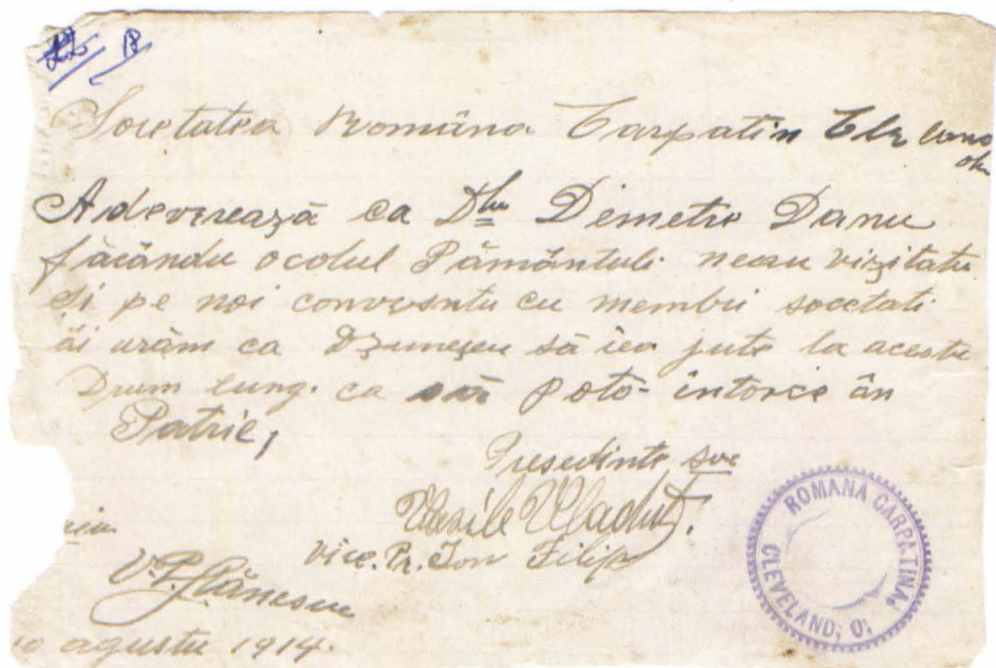 Societatea Româna Carpatin
Adeverează ca Dlu Demetie Danu
făcându ocolul Pământuli neau vizitatu
Și pe noi convrsntu cu membri socetati
ăi urăm ca Dzuneșeu să iea jute la acestu
Drum lung. ca să poto- întorce ân
Patrie,
Presedinte soc
Vasile Vladuț.
Vice. Pr. Ion Filip
V. P. Stănescu
10 agustu 1914.
ROMANA CARPATINA
CLEVELAND, O.